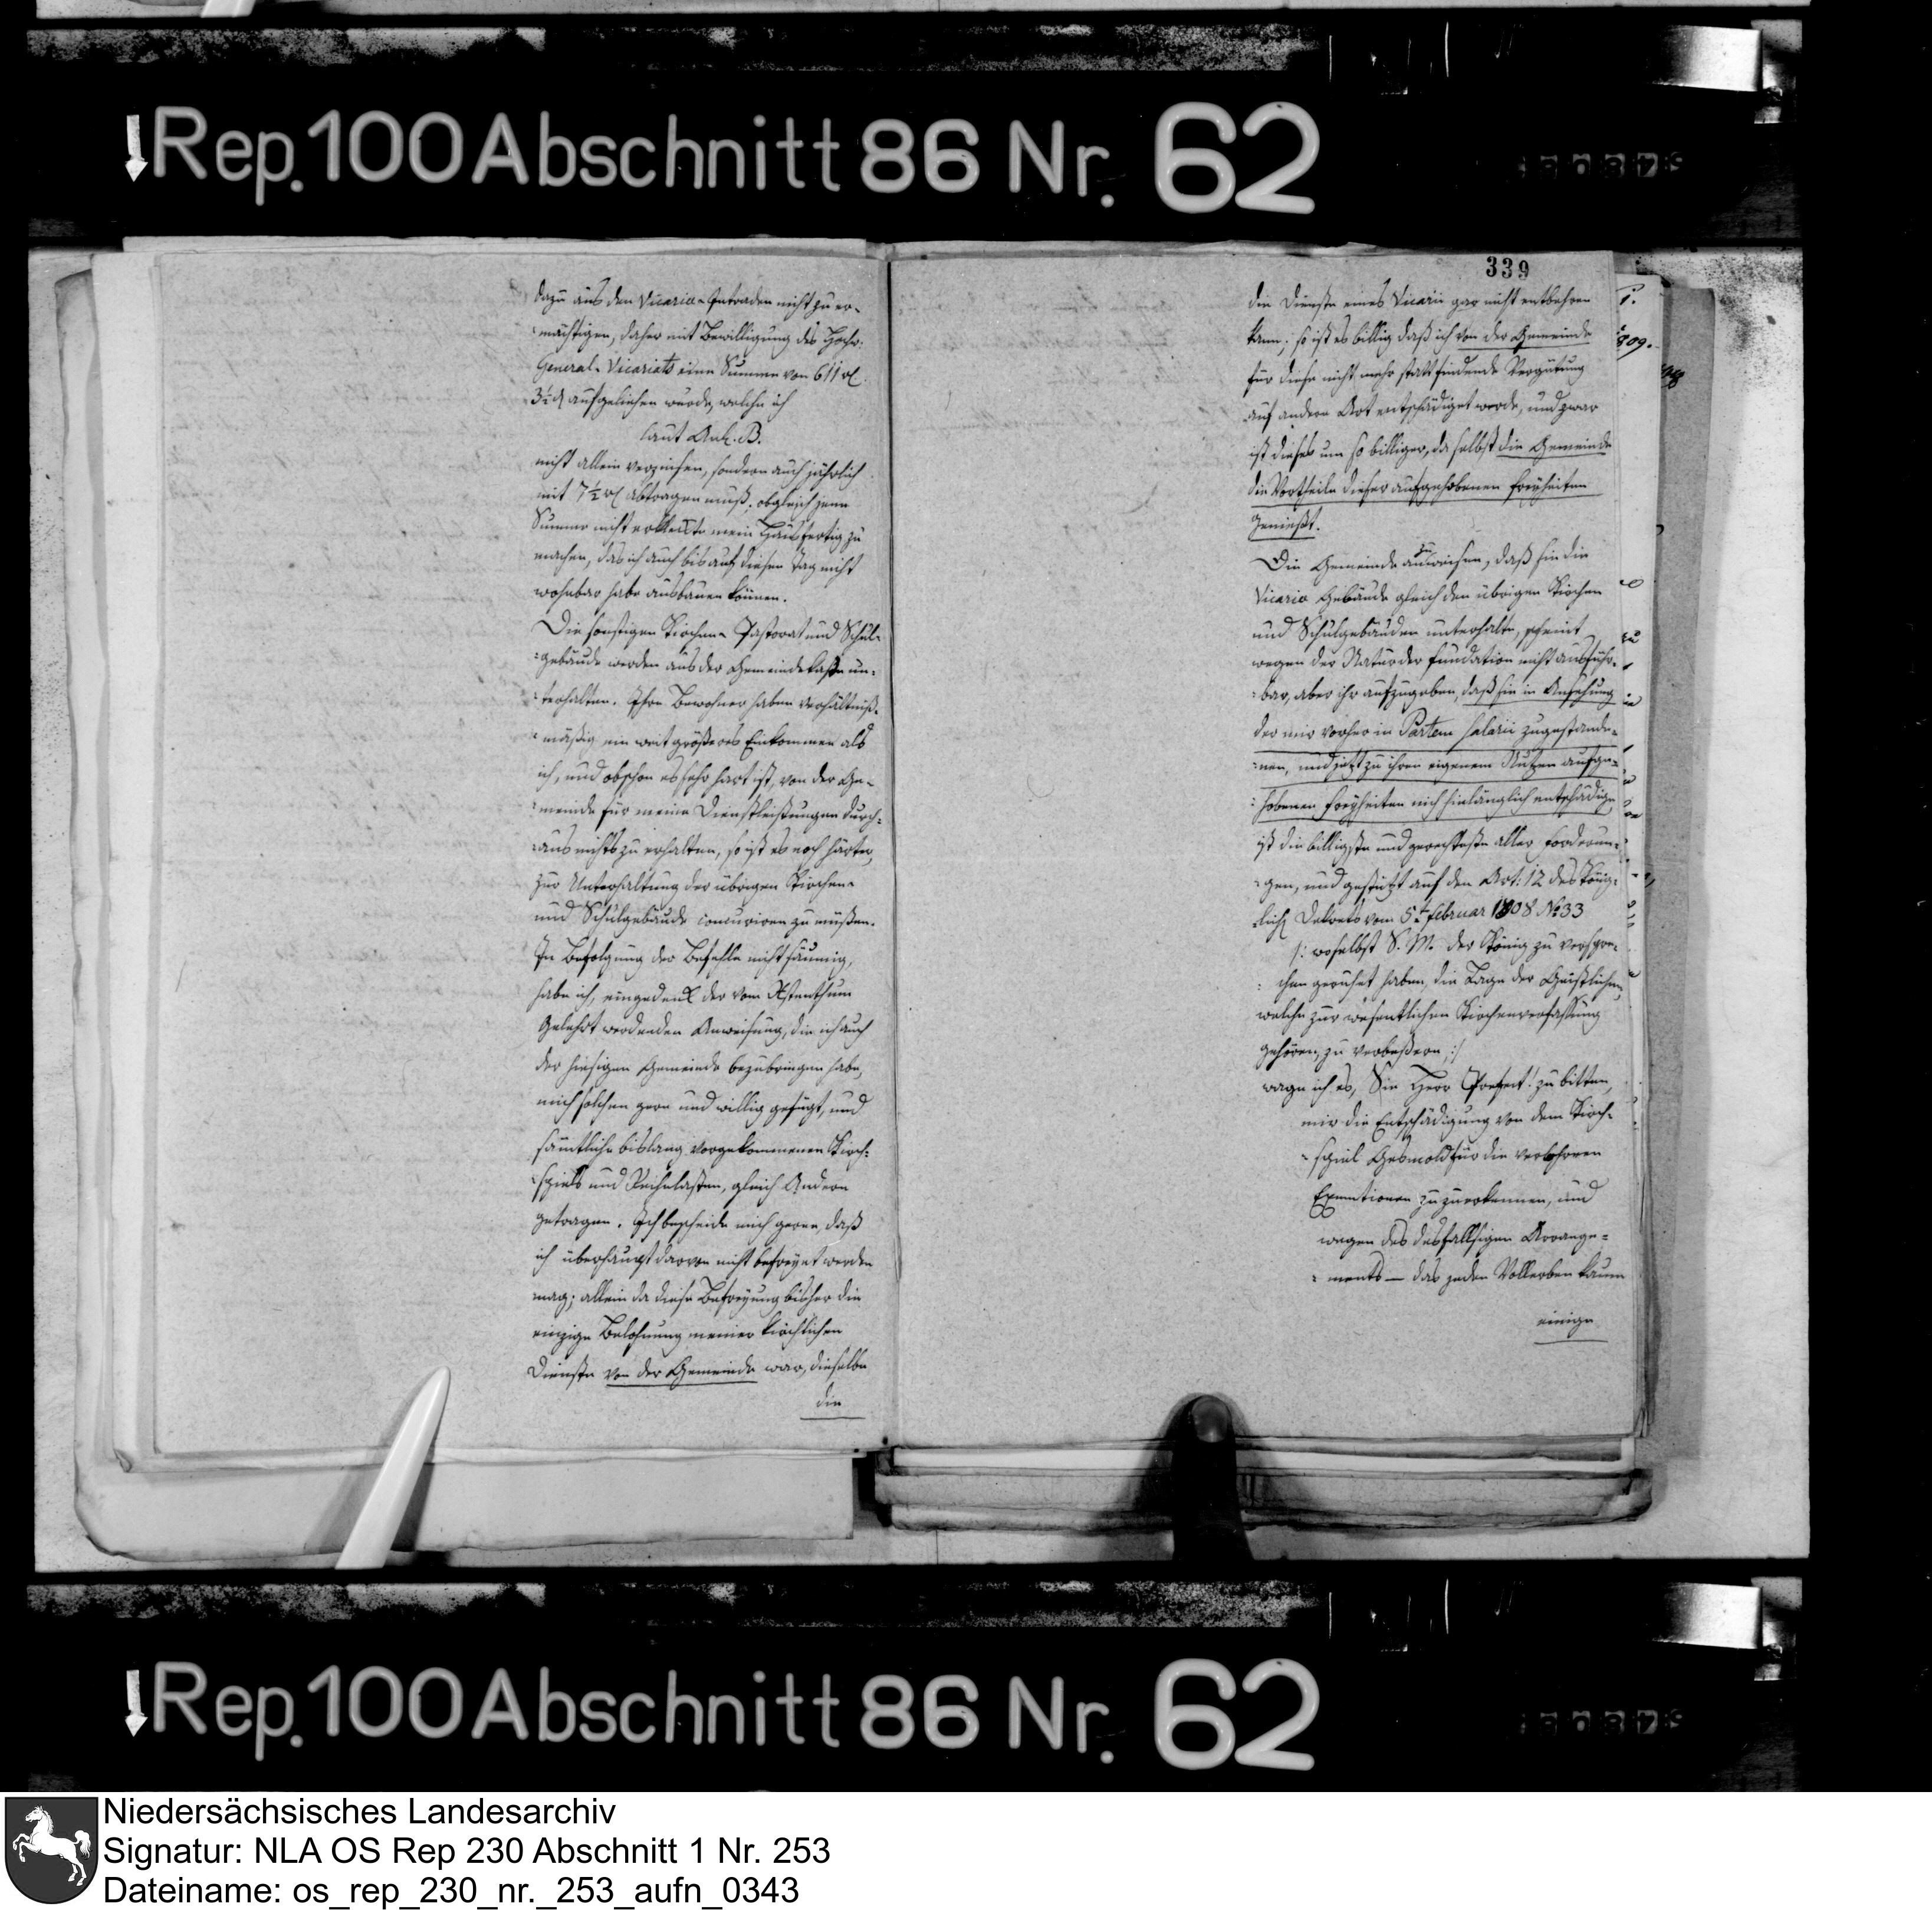 Rep. 100 Abschnitt 86 Nr. 62
dazu aus den Vicarie-Intraden nicht zu er-
mächtigen, daher mit Bewilligung des Hochw.
General-Vicariats eine Summe von 611 rl
3½ d aufgeliehen wurde, welche ich
laut Anl. B.
nicht allein verzinsen, sondern auch jährlich
mit 7½ rl abtragen muß, obgleich jene
Summe nicht mein Haus fertig zu
machen, das ich auch bis auf diesen Tag nicht
wohnbar habe ausbauen können.
Die sonstigen Kirchen- Pastorat und Schul-
gebäude werden aus der Gemeindekasse un-
terhalten. Ihre Bewohner haben verhältniß-
mäßig ein weit größeres Einkommen als
ich, und obschon es sehr hart ist, von der Ge-
meinde für meine Dienstleistungen durch-
aus nichts zu erhalten, so ist es noch härter,
zur Unterhaltung der übrigen Kirchen-
und Schulgebäude concuriren zu müßen.
In Befolgung der Befehle nicht säumig,
habe ich, eingedenk der vom Xstenthum
gelehrt werdenden Anweisung, die ich auch
der hiesigen Gemeinde bezubringen habe,
mich solchen gern und willig gefügt, und
sämtliche bislang vorgekommenen Kirch-
spiels und Reihelasten, gleich Andern
getragen. Ich bescheide mich gerne, daß
ich überhaupt davon nicht befreyet werden
mag; allein da diese Befreyung bisher die
einzige Belohnung meiner kirchlichen
Dienste von der Gemeinde war, dieselbe
die
339
die Dienste eines Vicarii gar nicht entbehren
kann; so ist es billig daß ich von der Gemeinde
für diese nicht mehr stattfindende Vergütung
auf andere Art entschädiget werde, und zwar
ist dieses um so billiger, da selbst die Gemeinde
die Vortheile dieser aufgehobenen Freyheiten
genießt.
Die Gemeinde anzuweisen, daß sie die
Vicarie Gebäude gleich den übrigen Kirchen
und Schulgebäuden unterhalte, scheint
wegen der Natur der Fundation nicht ausführ-
bar, aber ihr aufzugeben, daß sie in Ansehung
der mir vorher in Partem Salarii zugestande-
nen, und jetzt zu ihrem eigenem Nutzen aufge-
hobenen Freyheiten mich hinlänglich entschädige,
ist die billigste und gerechteste aller Forderun-
gen, und gestützt auf den Art: 12 des König-
lich Dekrets vom 5t Februar 1808 No 33
/: woselbst S. M. der König zu verspre-
chen geruhet haben, die Lage der Geistlichen,
welche zur wesentlichen Kirchenverfassung
gehören, zu verbeßern, :/
wage ich es, Sie Herr Prefect! zu bitten,
mir die Entschädigung von dem Kirch-
spiel Gesmold für die verlohrnen
Exemtionen zuzuerkennen, und
wegen des desfallsigen Arrange-
ments — das jeden Vollerben kaum
einige
809.
Rep. 100 Abschnitt 86 Nr. 62
Niedersächsisches Landesarchiv
Signatur: NLA OS Rep 230 Abschnitt 1 Nr. 253
Dateiname: os_rep_230_nr._253_aufn_0343